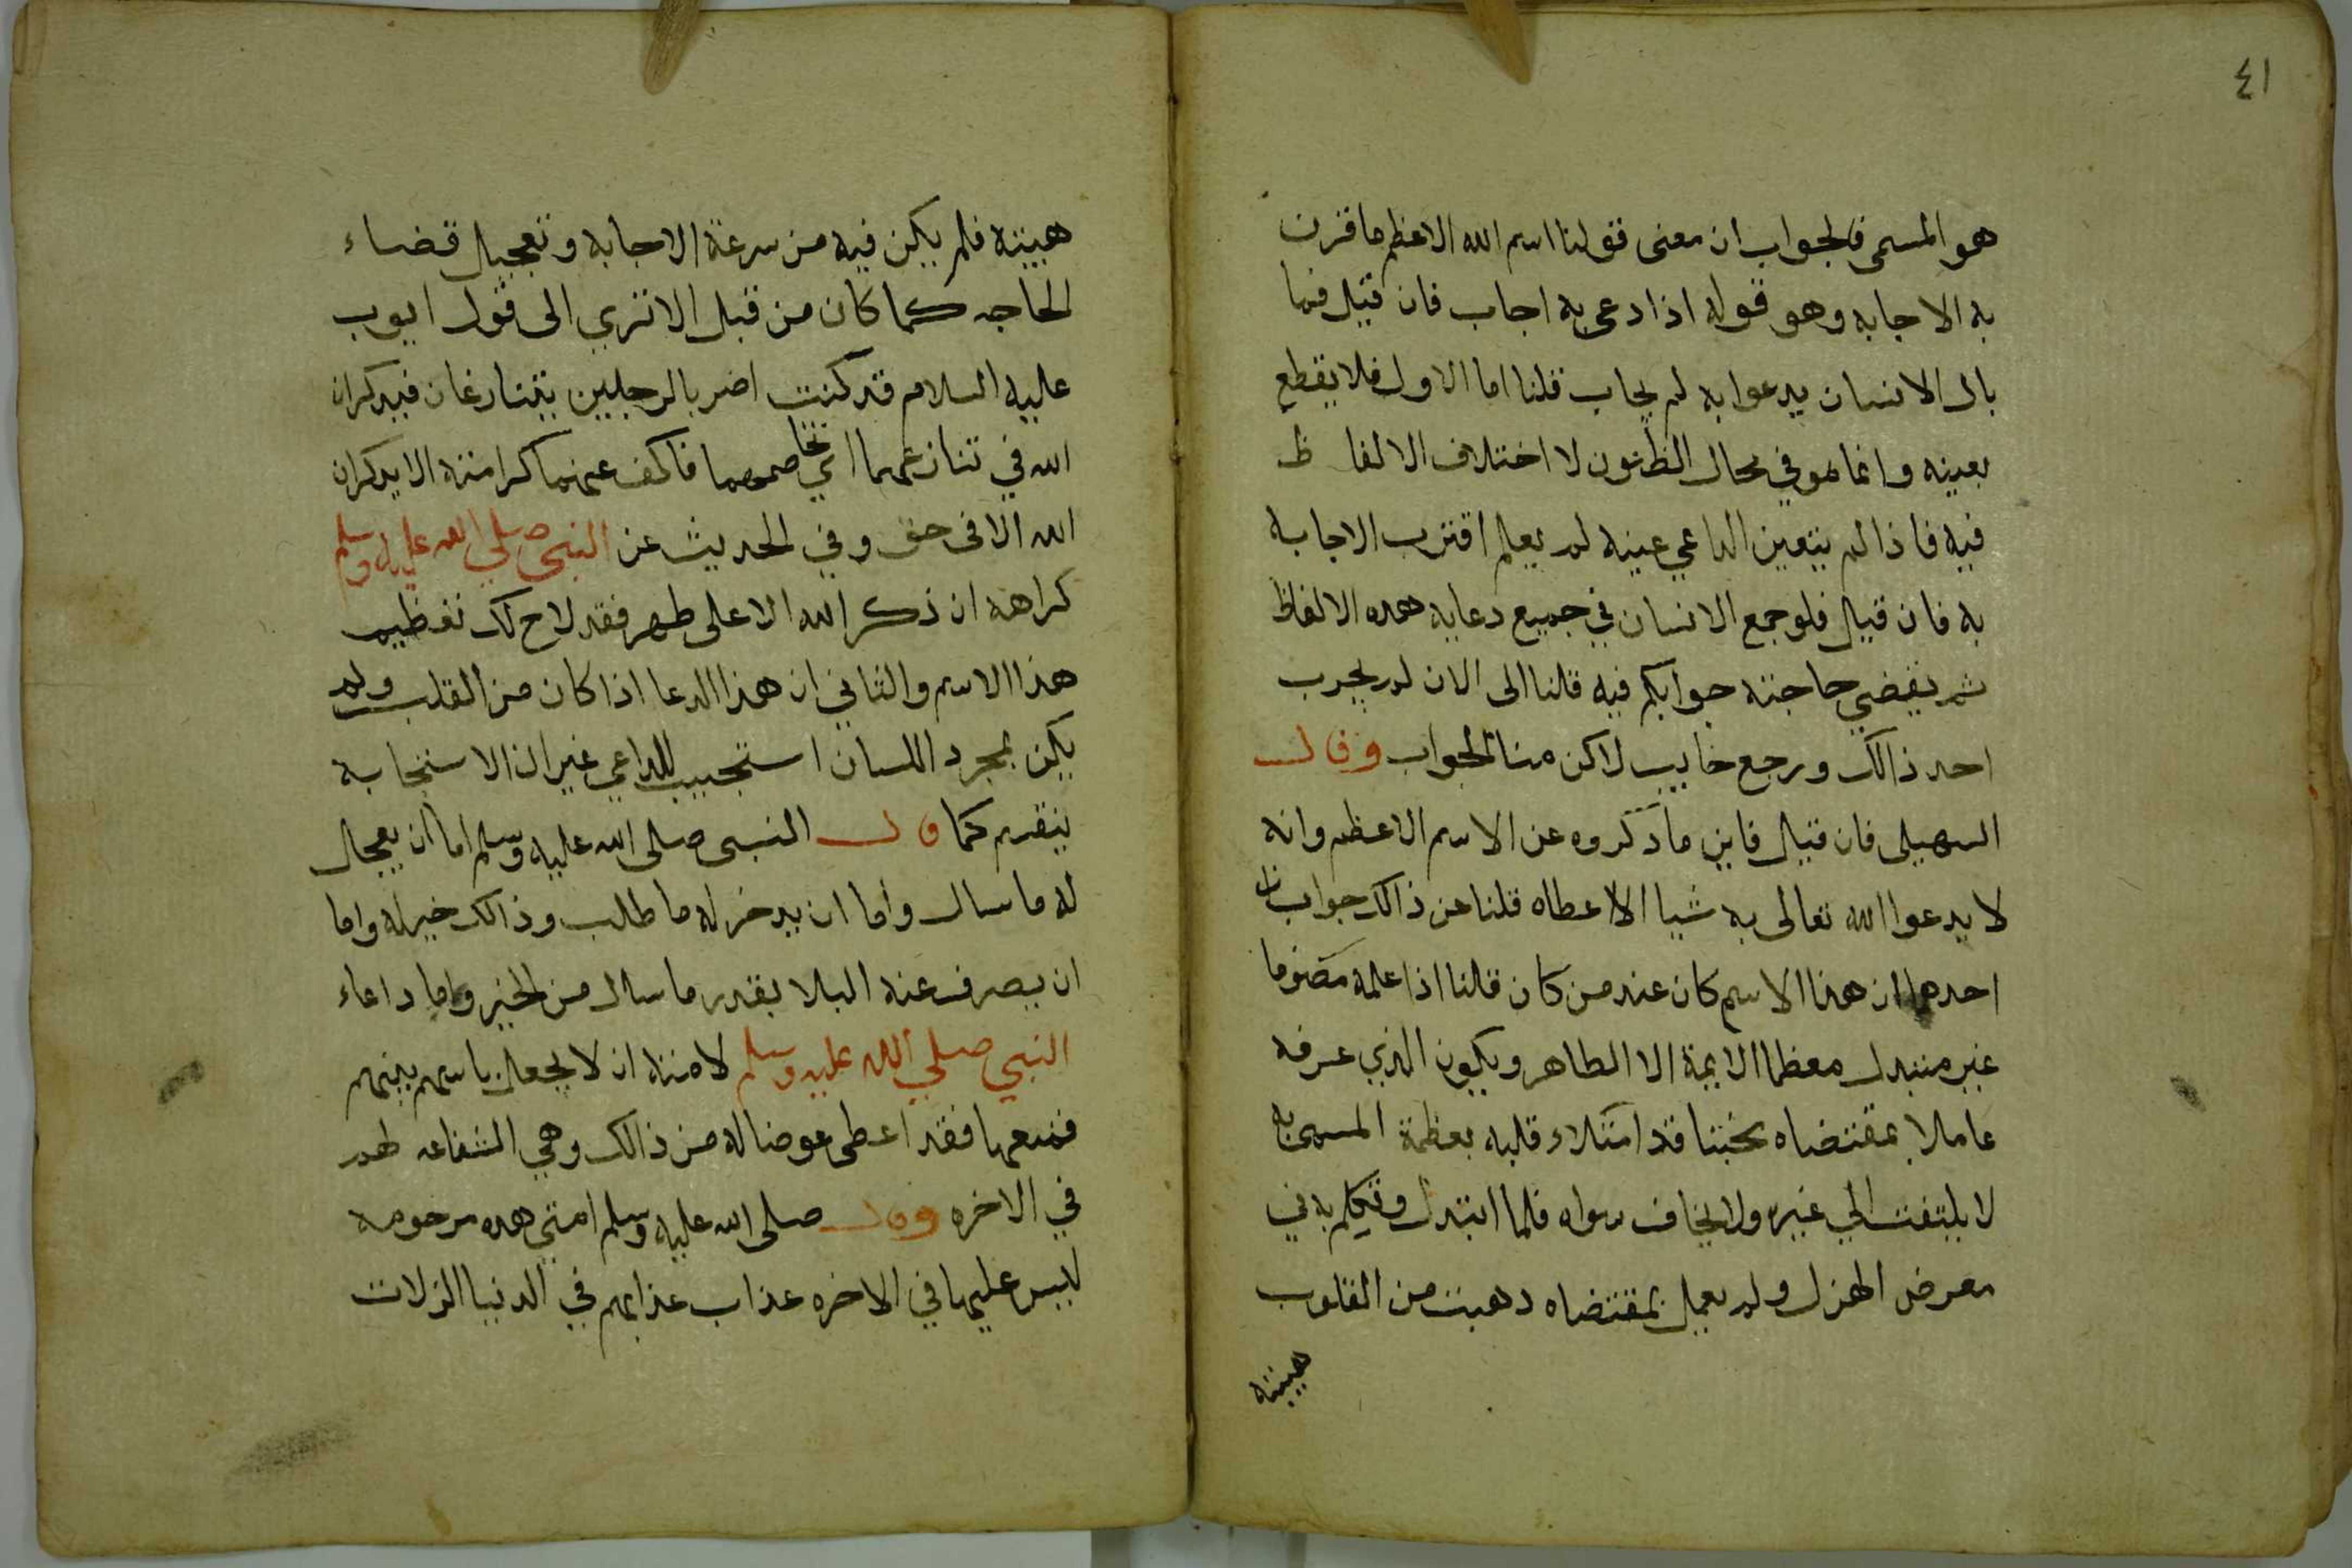 ٤١
هو المسمى فالجواب ان معنى قولنا اسم الله الاعظم ما قرن
به الاجابه وهو قوله اذا دعى به اجاب فان قيل فما
بال الانسان يدعوا به لم يجاب قلنا اما الاول فلا يقطع
بعينه وانما هو في محال الظنون لا اختلاف الالفاظ
فيه فاذا لم يتعين الداعي عينه لم يعلم اقترب الاجابة
به فان قيل فلو جمع الانسان في جميع دعايه هده الالفاظ
ثم يقضي حاجته جوابكم فيه قلنا الى الان لم يجرب
احد ذالك ورجع خايب لاكن منا الجواب وقال
السهيلى فان قيل فاين ما دكروه عن الاسم الاعظم وانه
لا يدعوا الله تعالى به شيا الا اعطاه قلنا عن ذالك جوابان
احدهما ان هذا الاسم كان عند من كان قلنا اذا علمه مصوما
غير مبتدل معظما الايمة الا الطاهر ويكون الذي عرفه
عاملا بمقتضاه مخبتا قد امتلاء قلبه بعظمة المسمى به
لا يلتفت الي غيره ولا يخاف سواه فلما ابتدل وتكلم به في
معرض الهزل ولم يعمل بمقتضاه دهبت من القلوب
هيبته
هيبته فلم يكن فيه من سرعة الاجابه وتعجيل قضاء
الحاجه كما كان من قبل الا تري الى قول ايوب
عليه السلام قد كنت اضر بالرجلين يتنازعان فيدكران
الله في تنازعهما اي تخاصمهما فاكف عنهما كرامته الا يدكران
الله الا فى حق وفي الحديث عن النبي صلي الله عليه وسلم
كراهة ان ذكر الله الا على طهر فقد لاح لك تعظيم
هذا الاسم والثاني ان هذا الدعا اذا كان من القلب ولم
يكن بمجرد اللسان استجيب للداعي غير ان الاستجابة
ينقسم كما قال النبى صلى الله عليه وسلم اما ان يعجل
له ما سال واما ان يدخر له ما طلب وذالك خير له واما
ان يصرف عنه البلا بقدر ما سال من الخير واما داعاء
النبي صلي الله عليه وسلم لامته ان لا يجعل باسهم بينهم
فمنعها فقد اعطى عوضا له من ذالك وهي الشفاعه لهم
في الاخره وقال صلى الله عليه وسلم امتي هده مرحومه
ليس عليها في الاخره عذاب عذابهم في الدنيا الزلات